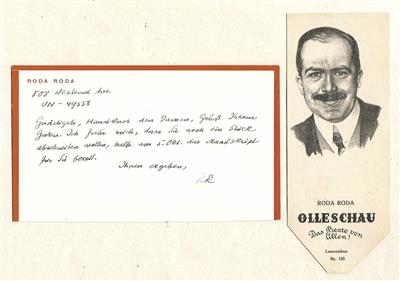 RODA RODA
808 Westend Ave
UN - 49558
Gnädigste, Handkuss den Damen, Gruß Ihrem
Ich freue mich, dass Sie noch ein Stück
abschreiben wollen, halte am 5. Okt. das Manuskript
für Sie bereit.
Ihnen ergeben,
RODA RODA
OLLESCHAU
Das Beste von
Allen!
Lesezeichen
Nr. 141